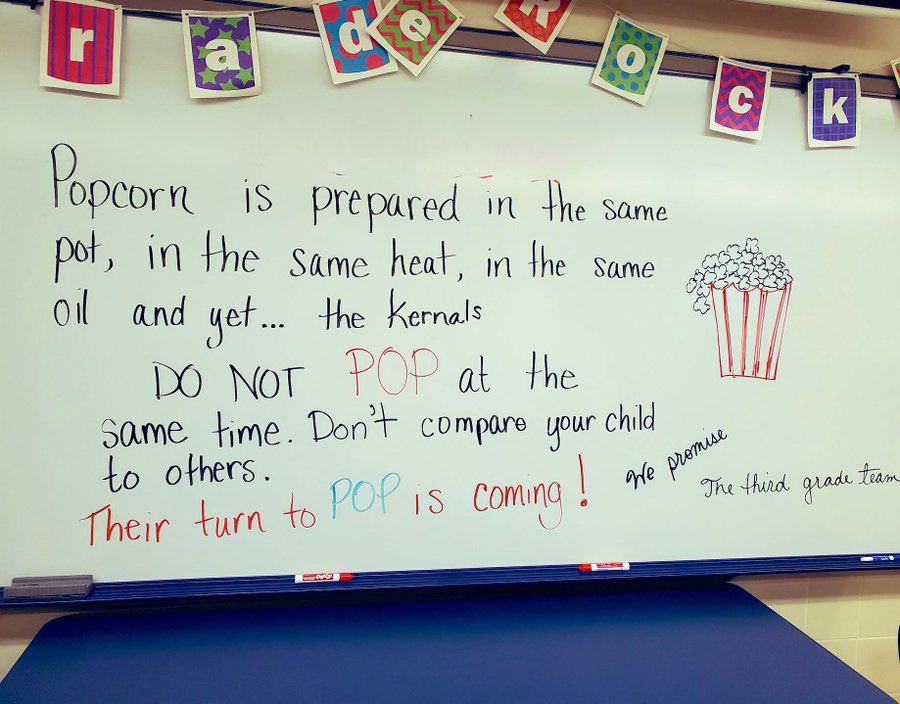 r a d e R o c k
Popcorn is prepared in the same
pot, in the same heat, in the same
oil and yet... the kernals
DO NOT POP at the
same time. Don't compare your child
to others.
Their turn to POP is coming!
We promise
The third grade team